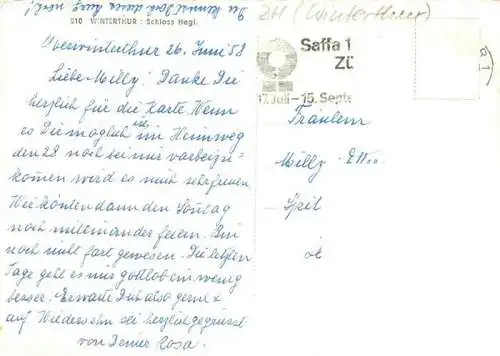 Du kannst doch dann kurz
noch!
910 WINTERTHUR: Schloss Hegi.
Oberwinterthur 26. Juni 58
Liebe Milly! Danke Dir
herzlich für die Karte. Wenn
es Dir möglich ist im Heimweg
den 28 noch bei mir vorbeizu-
kommen wird es mich sehr freuen
Wir könten dann den Sontag
noch miteinander feiern. Bin
noch nicht fort gewesen. Die letzten
Tage geht es mir gottlob ein wenig
besser. Erwarte Dich also gerne &
auf Wiedersehn sei herzlich gegrüsst
von Deiner Rosa.
ZH (Winterthur)
Saffa 1
Zü
17. Juli - 15. Septe
Fräulein
Milly